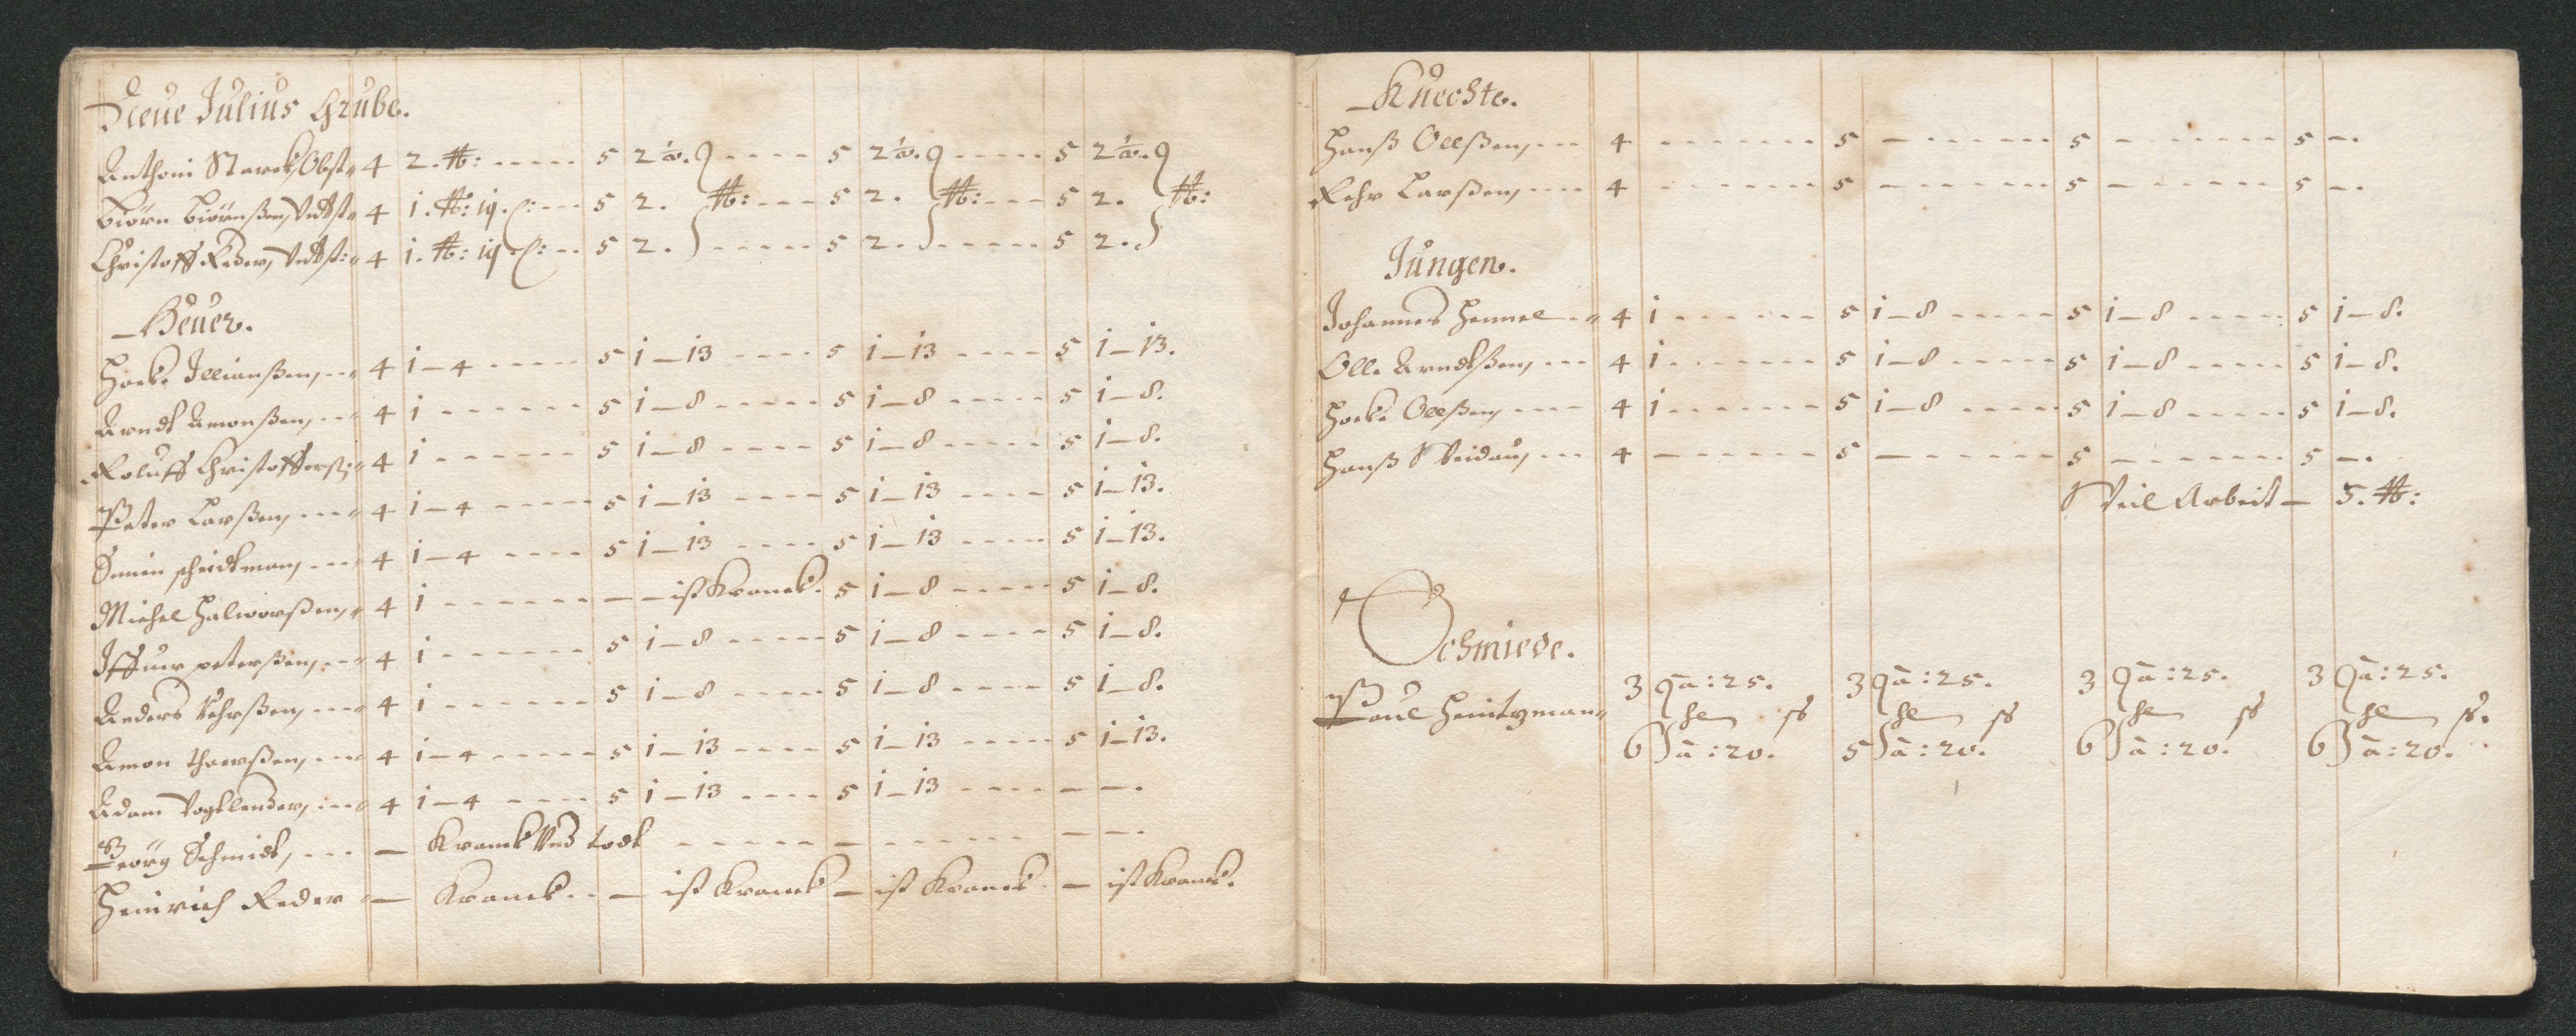 Neue Julius Grube.
Anthoni Starck, Obst: 4 2. ℔: ----- 5 2½. ---- 5 2½. ----- 5 2½.
Biörn Biörnßen, Undst: 4 1. ℔: 19. ß: --- 5 2. ℔: --- 5 2. ℔: --- 5 2. ℔:
Christoff Reder, Undst: 4 1. ℔: 19 ß: -- 5 2. ----- 5 2. ----- 5 2.
Heuer.
Hocke Illianßen, --- 4 1–4 ----- 5 1–13 ---- 5 1–13 ---- 5 1–13.
Arndt Amonßen, --- 4 1 ------ 5 1–8 ----- 5 1–8 ----- 5 1–8.
Roluff Christofferß: 4 1 ------ 5 1–8 ----- 5 1–8 ---- 5 1–8.
Peter Larßen, --- 4 1–4 ----- 5 1–13 ---- 5 1–13 ---- 5 1–13.
Simin scheidtman, --- 4 1–4 ---- 5 1–13 ---- 5 1–13 ---- 5 1–13.
Michel Halworßen, 4 1 ------ — – ist Kranck. 5 1–8 ----- 5 1–8.
Iffuer peterßen, --- 4 1 ------ 5 1–8 ----- 5 1–8 ---- 5 1–8.
Anders Rehrßen, --- 4 1 ------ 5 1–8 ----- 5 1–8 ---- 5 1–8.
Amon thorßen, --- 4 1–4 ----- 5 1–13 ---- 5 1–13 ----- 5 1–13.
Adam Vogtlender, --- 4 1–4 ---- 5 1–13 ---- 5 1–13 ---- — —.
Georg Schmidt, --- — Kranck Und todt ----- — ------ — —.
Heinrich Reder — Kranck. -- — ist Kranck — ist Kranck. — ist Kranck.
Knechte.
Hanß Ollßen, --- 4 ------- 5 – ------ 5 – ------ 5 –.
Rehr Larßen, ---- 4 ------ 5 – ------ 5 – ------ 5 –.
Jungen.
Johannes Hennel -- 4 1 ------ 5 1–8 ----- 5 1–8 ----- 5 1–8.
Olle Arndtßen, --- 4 1 ------ 5 1–8 ------ 5 1–8 ----- 5 1–8.
Hocke Ollßen, ---- 4 1 ------ 5 1–8 ----- 5 1–8 ----- 5 1–8.
Hanß Weidau, --- 4 – ------ 5 – ------ 5 – ------ 5 –.
Weil Arbeit – 5. ℔:
Schmiede.
3 à: 25. 3 à: 25. 3 à: 25. 3 à: 25.
Paul Heintzman ß ß ß ß.
6 à: 20. 5 à: 20. 6 à: 20. 6 à: 20.